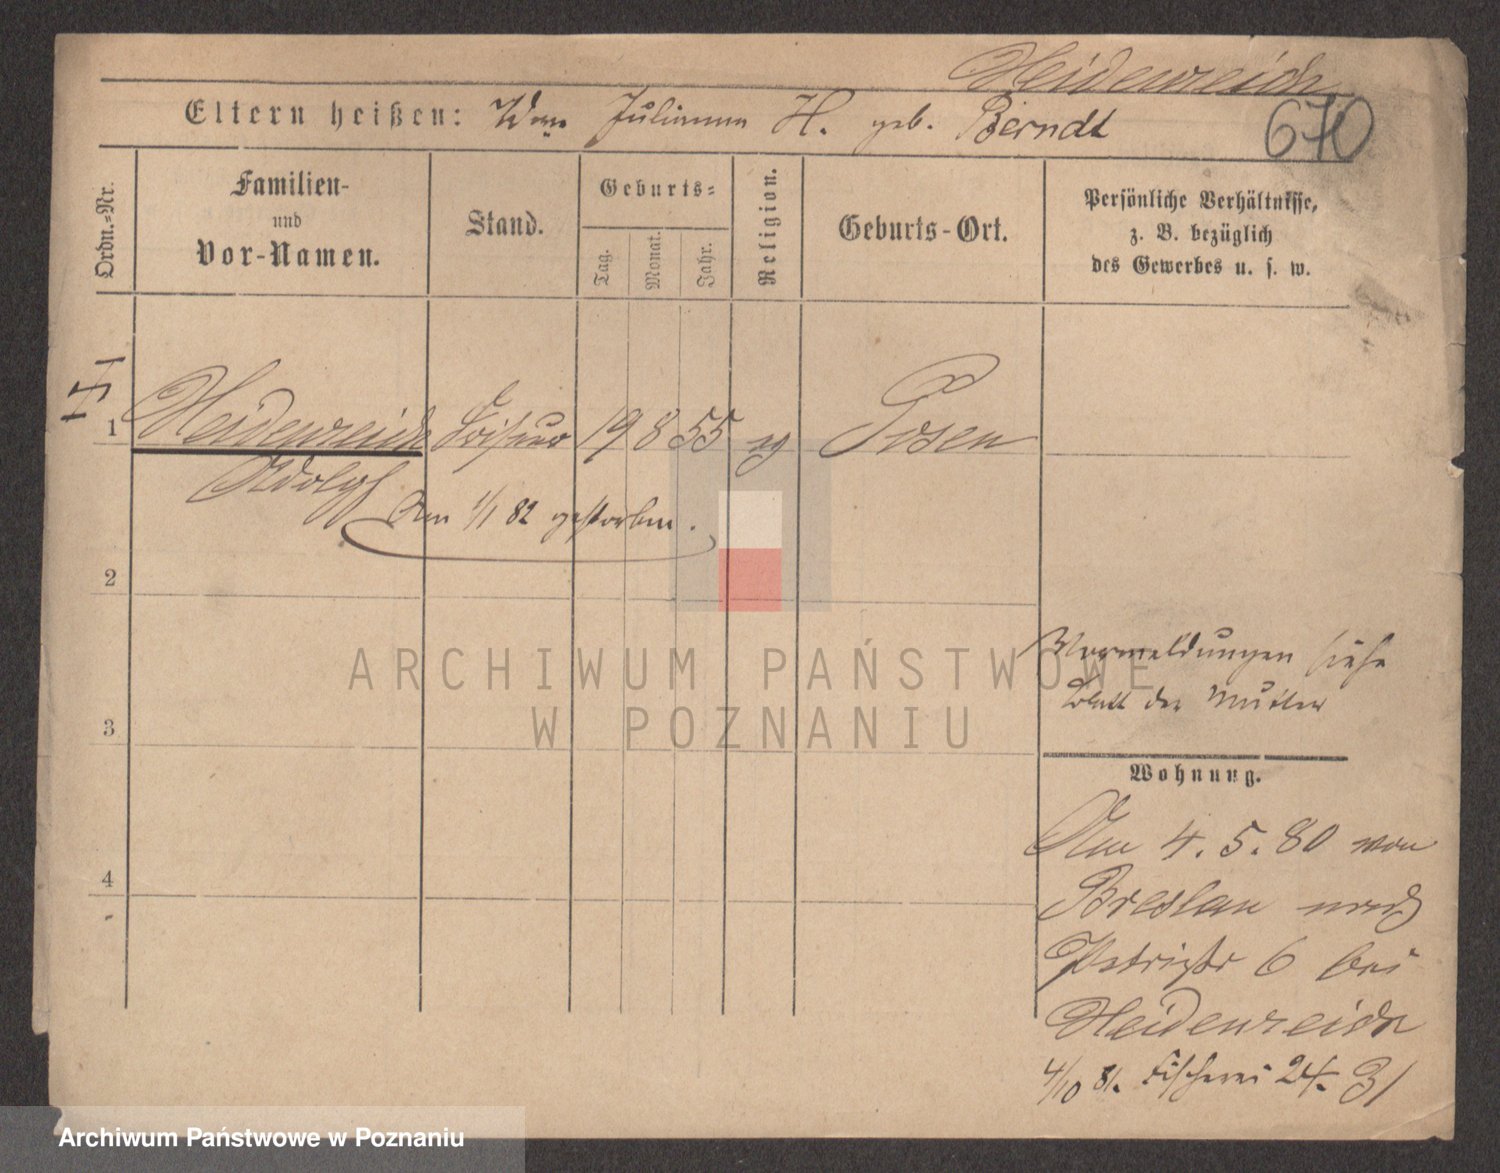 Heidenreich
670
Eltern heißen: Wwe Julianna H. geb. Berndt
Ordn.-Nr.
Familien-
und
Vor-Namen.
Stand.
Geburts-
Tag.
Monat.
Jahr.
Religion.
Geburts-Ort.
Persönliche Verhältnisse,
z. B. bezüglich
des Gewerbes u. s. w.
1 Heidenreich Friseur 19 8 55 eg Posen
Adolf
Am 1/1 82 gestorben.
2
Vormeldungen siehe
ARCHIWUM PAŃSTWOWE
Blatt der Mutter
W POZNANIU
3
Wohnung.
Am 4. 5. 80 von
4
Breslau nach
6 bei
Heidenreich
4/10 81. Fischerei 24. 31
Archiwum Państwowe w Poznaniu